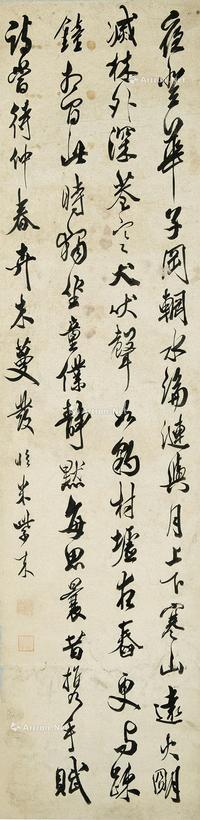 夜登華子岡輞水淪漣與月上下寒山遠火明
滅林外深巷寒犬吠聲如豹村墟夜舂更與疎
鐘相間此時獨坐童僕静默每思曩昔携手賦
詩當待仲春卉木蔓發 臨米紫來